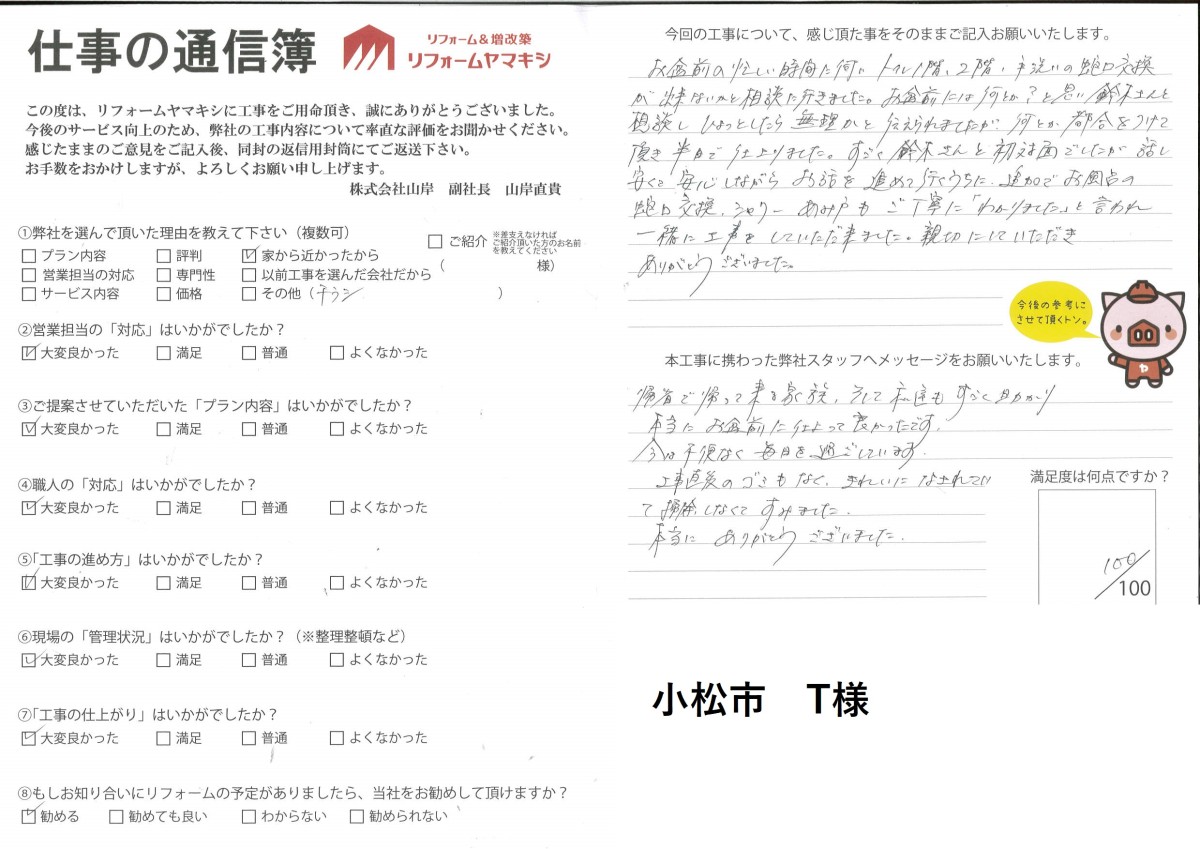 仕事の通信簿
リフォーム&増改築
リフォームヤマキシ
この度は、リフォームヤマキシに工事をご用命頂き、誠にありがとうございました。
今後のサービス向上のため、弊社の工事内容について率直な評価をお聞かせください。
感じたままのご意見をご記入後、同封の返信用封筒にてご返送下さい。
お手数をおかけしますが、よろしくお願い申し上げます。
株式会社山岸 副社長 山岸直貴
①弊社を選んで頂いた理由を教えて下さい(複数可)
□ご紹介 ※差支えなければ
ご紹介頂いた方のお名前
を教えてください
( 様)
□プラン内容 □評判 ☑家から近かったから
□営業担当の対応 □専門性 □以前工事を選んだ会社だから
□サービス内容 □価格 □その他(チラシ )
②営業担当の「対応」はいかがでしたか?
☑大変良かった □満足 □普通 □よくなかった
③ご提案させていただいた「プラン内容」はいかがでしたか?
☑大変良かった □満足 □普通 □よくなかった
④職人の「対応」はいかがでしたか?
☑大変良かった □満足 □普通 □よくなかった
⑤「工事の進め方」はいかがでしたか?
☑大変良かった □満足 □普通 □よくなかった
⑥現場の「管理状況」はいかがでしたか?(※整理整頓など)
☑大変良かった □満足 □普通 □よくなかった
⑦「工事の仕上がり」はいかがでしたか?
☑大変良かった □満足 □普通 □よくなかった
⑧もしお知り合いにリフォームの予定がありましたら、当社をお勧めして頂けますか?
☑勧める □勧めても良い □わからない □勧められない
今回の工事について、感じ頂た事をそのままご記入お願いいたします。
お盆前の忙しい時間に伺い トイレ1階、2階、手洗いの蛇口交換
が出来ないかと相談に行きました。お盆前には何とか?と思い鈴木さんと
相談し ひょっとしたら無理かと伝えられましたが、何とか都合をつけて
頂き半日で仕上りました。すごく鈴木さんと初対面でしたが話し
安くて安心しながらお話を進めて行くうちに、追加でお風呂の
蛇口交換、シャワー あみ戸もご丁寧に「わかりました」と言われ
一緒に工事をしていただき来ました。親切にしていただき
ありがとうございました。
今後の参考に
させて頂くトン。
本工事に携わった弊社スタッフへメッセージをお願いいたします。
帰省で帰って来る家族、そして私達もすごく助かり
本当にお盆前に仕よって良かったです。
今は不便なく毎日を過ごしています。
工事直後のゴミもなく、きれいになされてい
て掃除しなくてすみました。
本当に ありがとうございました。
満足度は何点ですか?
100/100
小松市 T様